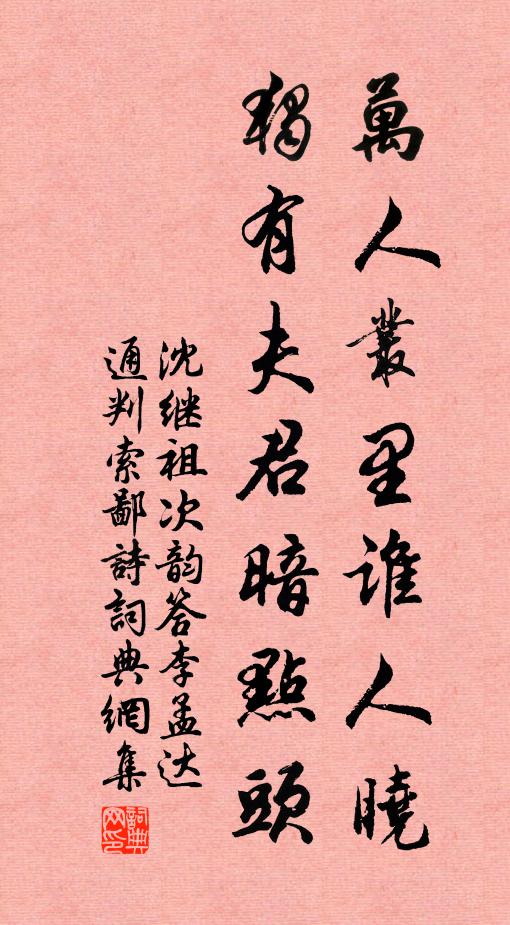 萬人叢里誰人曉
獨有夫君暗點頭
沈继祖次韵答李孟达
通判索鄙詩詞典網集
詞典
网印